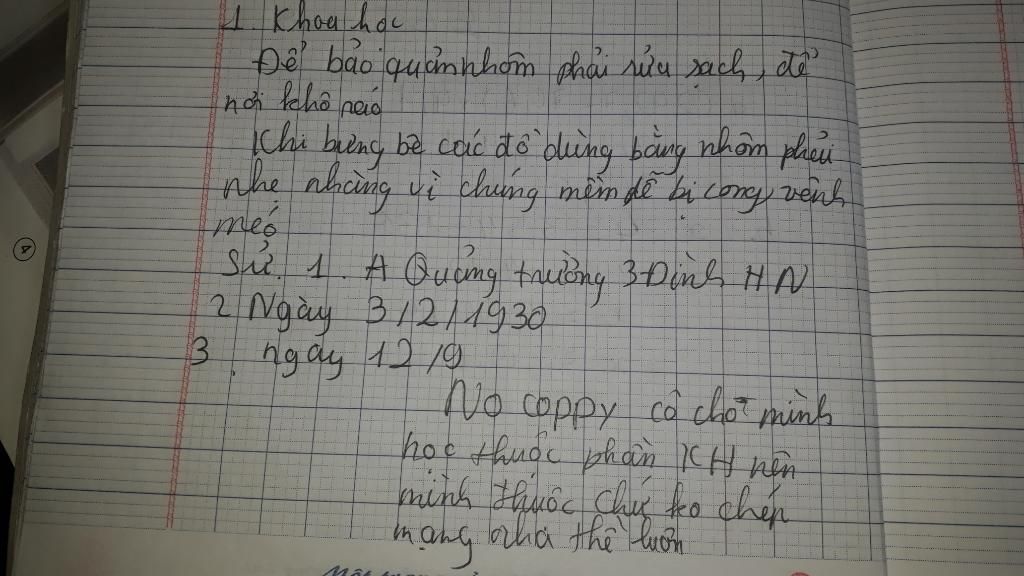 1 Khoa học
Để bảo quản nhôm phải rửa sạch, để
nơi khô ráo
Khi bưng bê các đồ dùng bằng nhôm phải
nhẹ nhàng vì chúng mềm dễ bị cong, vênh
méo
Sử. 1. A Quảng trường 3 Đình HN
2 Ngày 3/2/1930
3. ngày 12/9
No coppy cô cho mình
học thuộc phần KH nên
mình thuộc chứ ko chép
mạng nha thế luôn